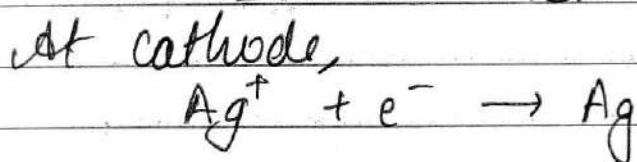 At cathode,
Ag⁺ + e⁻ → Ag